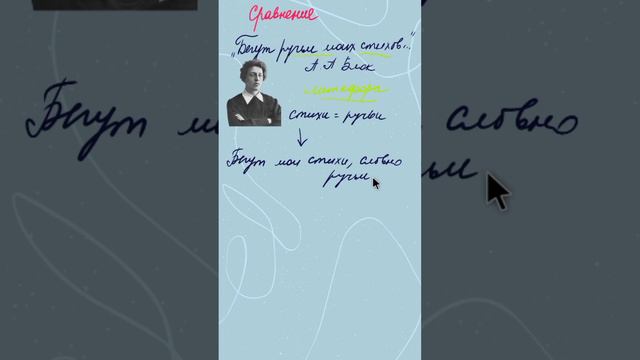 Сравнение
„Бегут ручьи моих стихов..."
А А Блок
метафора
стихи = ручьи
Бегут мои стихи, словно
ручьи